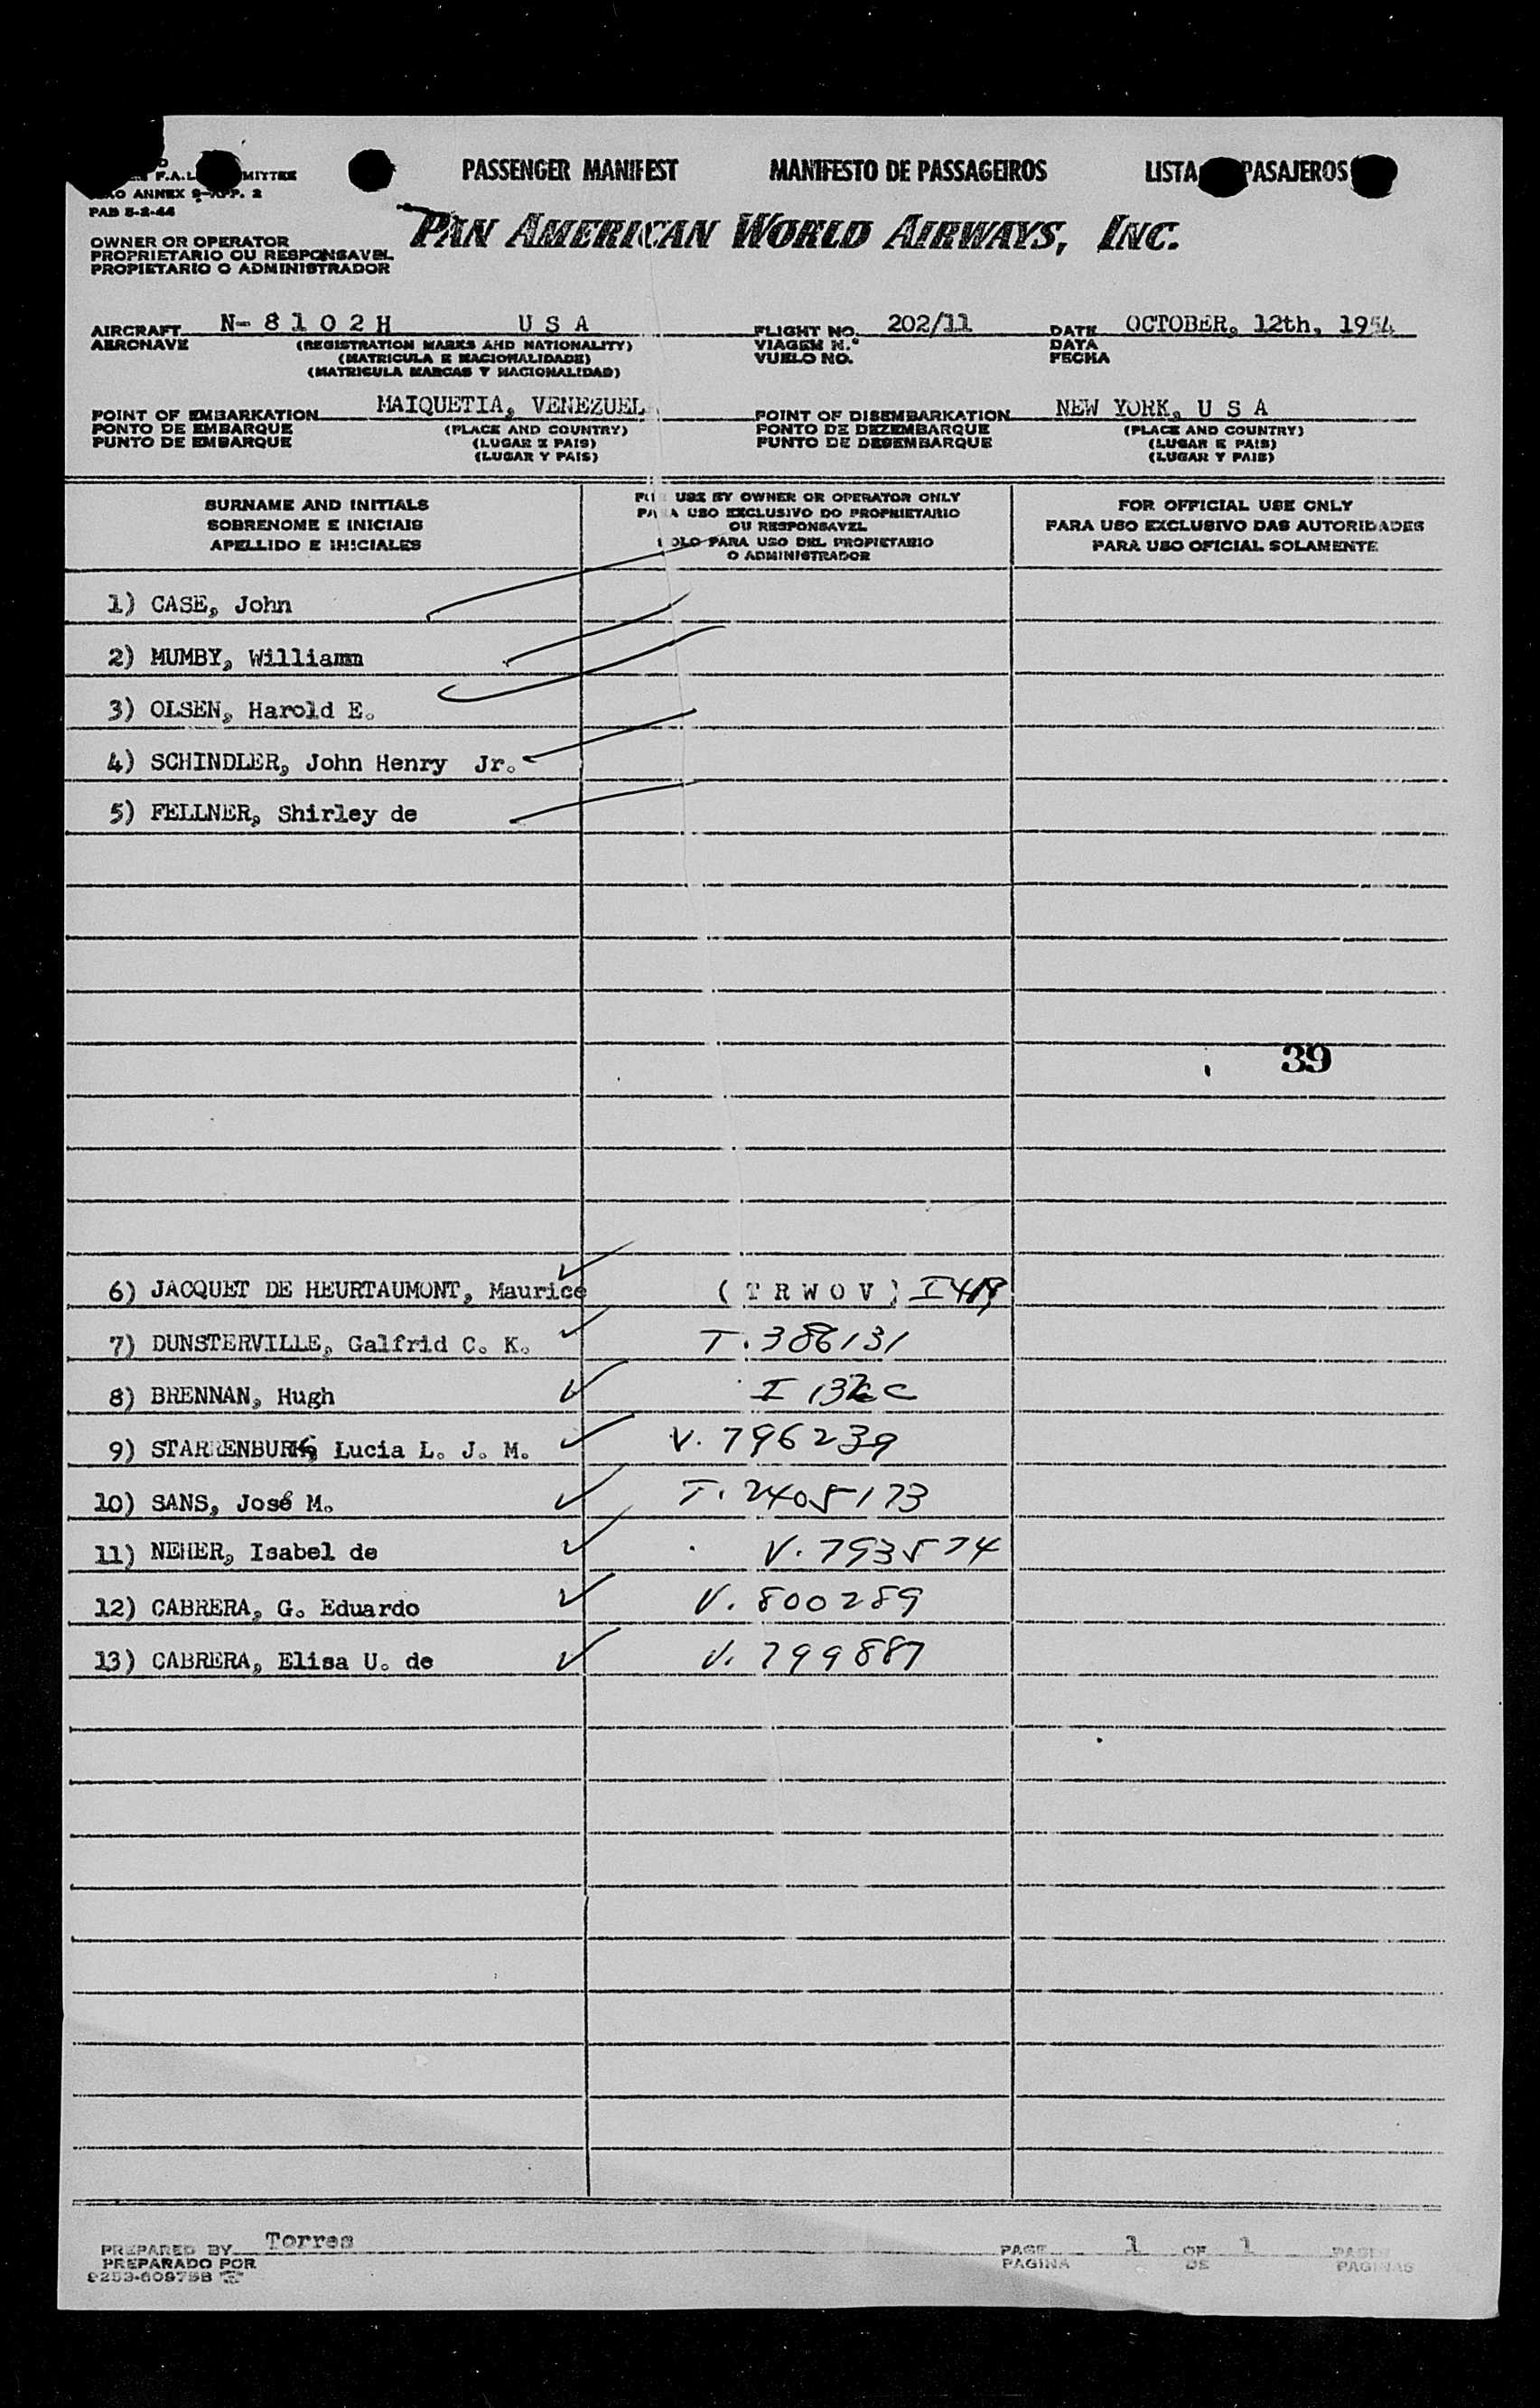 PASSENGER MANIFEST MANIFESTO DE PASSAGEIROS LISTA PASAJEROS
F.A.L.
ANNEX 9-APP. 2
PAB 5-2-44
PAN AMERICAN WORLD AIRWAYS, INC.
OWNER OR OPERATOR
PROPRIETARIO OU RESPONSAVEL
PROPIETARIO O ADMINISTRADOR
AIRCRAFT N-8102H USA FLIGHT NO. 202/11 DATE OCTOBER, 12th, 1954
AERONAVE (REGISTRATION MARKS AND NATIONALITY) VIAGEM N.º DATA
(MATRICULA E NACIONALIDADE) VUELO NO. FECHA
(MATRICULA MARCAS Y NACIONALIDAD)
POINT OF EMBARKATION MAIQUETIA, VENEZUEL POINT OF DISEMBARKATION NEW YORK, U S A
PONTO DE EMBARQUE (PLACE AND COUNTRY) PONTO DE DEZEMBARQUE (PLACE AND COUNTRY)
PUNTO DE EMBARQUE (LUGAR E PAIS) PUNTO DE DESEMBARQUE (LUGAR E PAIS)
(LUGAR Y PAIS) (LUGAR Y PAIS)
SURNAME AND INITIALS
SOBRENOME E INICIAIS
APELLIDO E INICIALES
FOR USE BY OWNER OR OPERATOR ONLY
PARA USO EXCLUSIVO DO PROPRIETARIO
OU RESPONSAVEL
SOLO PARA USO DEL PROPIETARIO
O ADMINISTRADOR
FOR OFFICIAL USE ONLY
PARA USO EXCLUSIVO DAS AUTORIDADES
PARA USO OFICIAL SOLAMENTE
1) CASE, John
2) MUMBY, Williamm
3) OLSEN, Harold E.
4) SCHINDLER, John Henry Jr.
5) FELLNER, Shirley de
39
6) JACQUET DE HEURTAUMONT, Maurice (TRWOV)
7) DUNSTERVILLE, Galfrid C. K. T. 386131
8) BRENNAN, Hugh I
9) STARRENBURG, Lucia L. J. M. V. 796239
10) SANS, José M. T. 2405173
11) NEHER, Isabel de V. 793574
12) CABRERA, G. Eduardo V. 800289
13) CABRERA, Elisa U. de V. 799887
PREPARED BY Torres PAGE 1 OF 1 PAGES
PREPARADO POR PAGINA DE PAGINAS